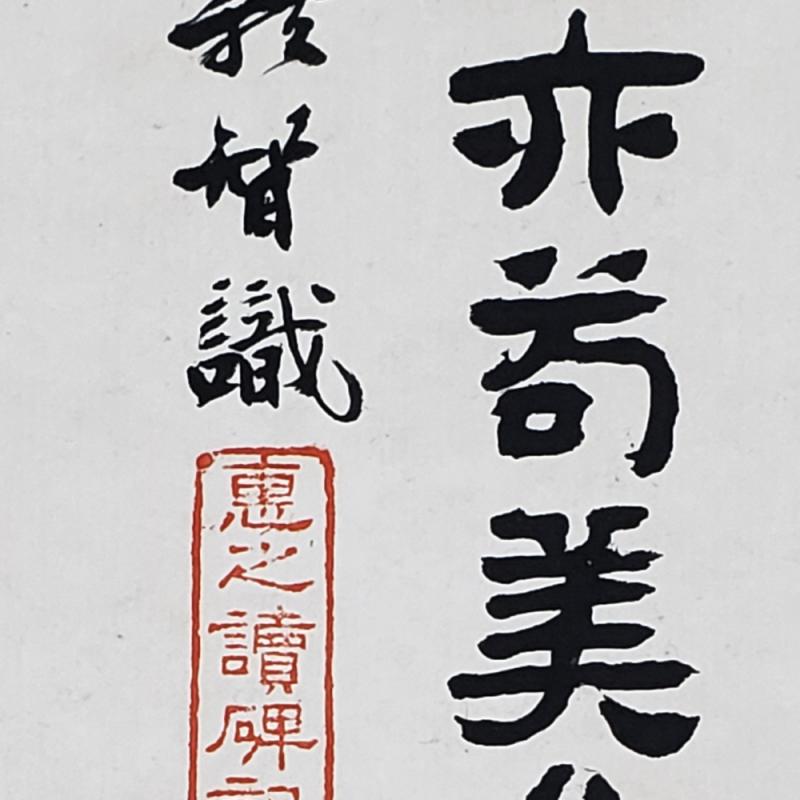 亦苟美
智識
惠之讀碑記